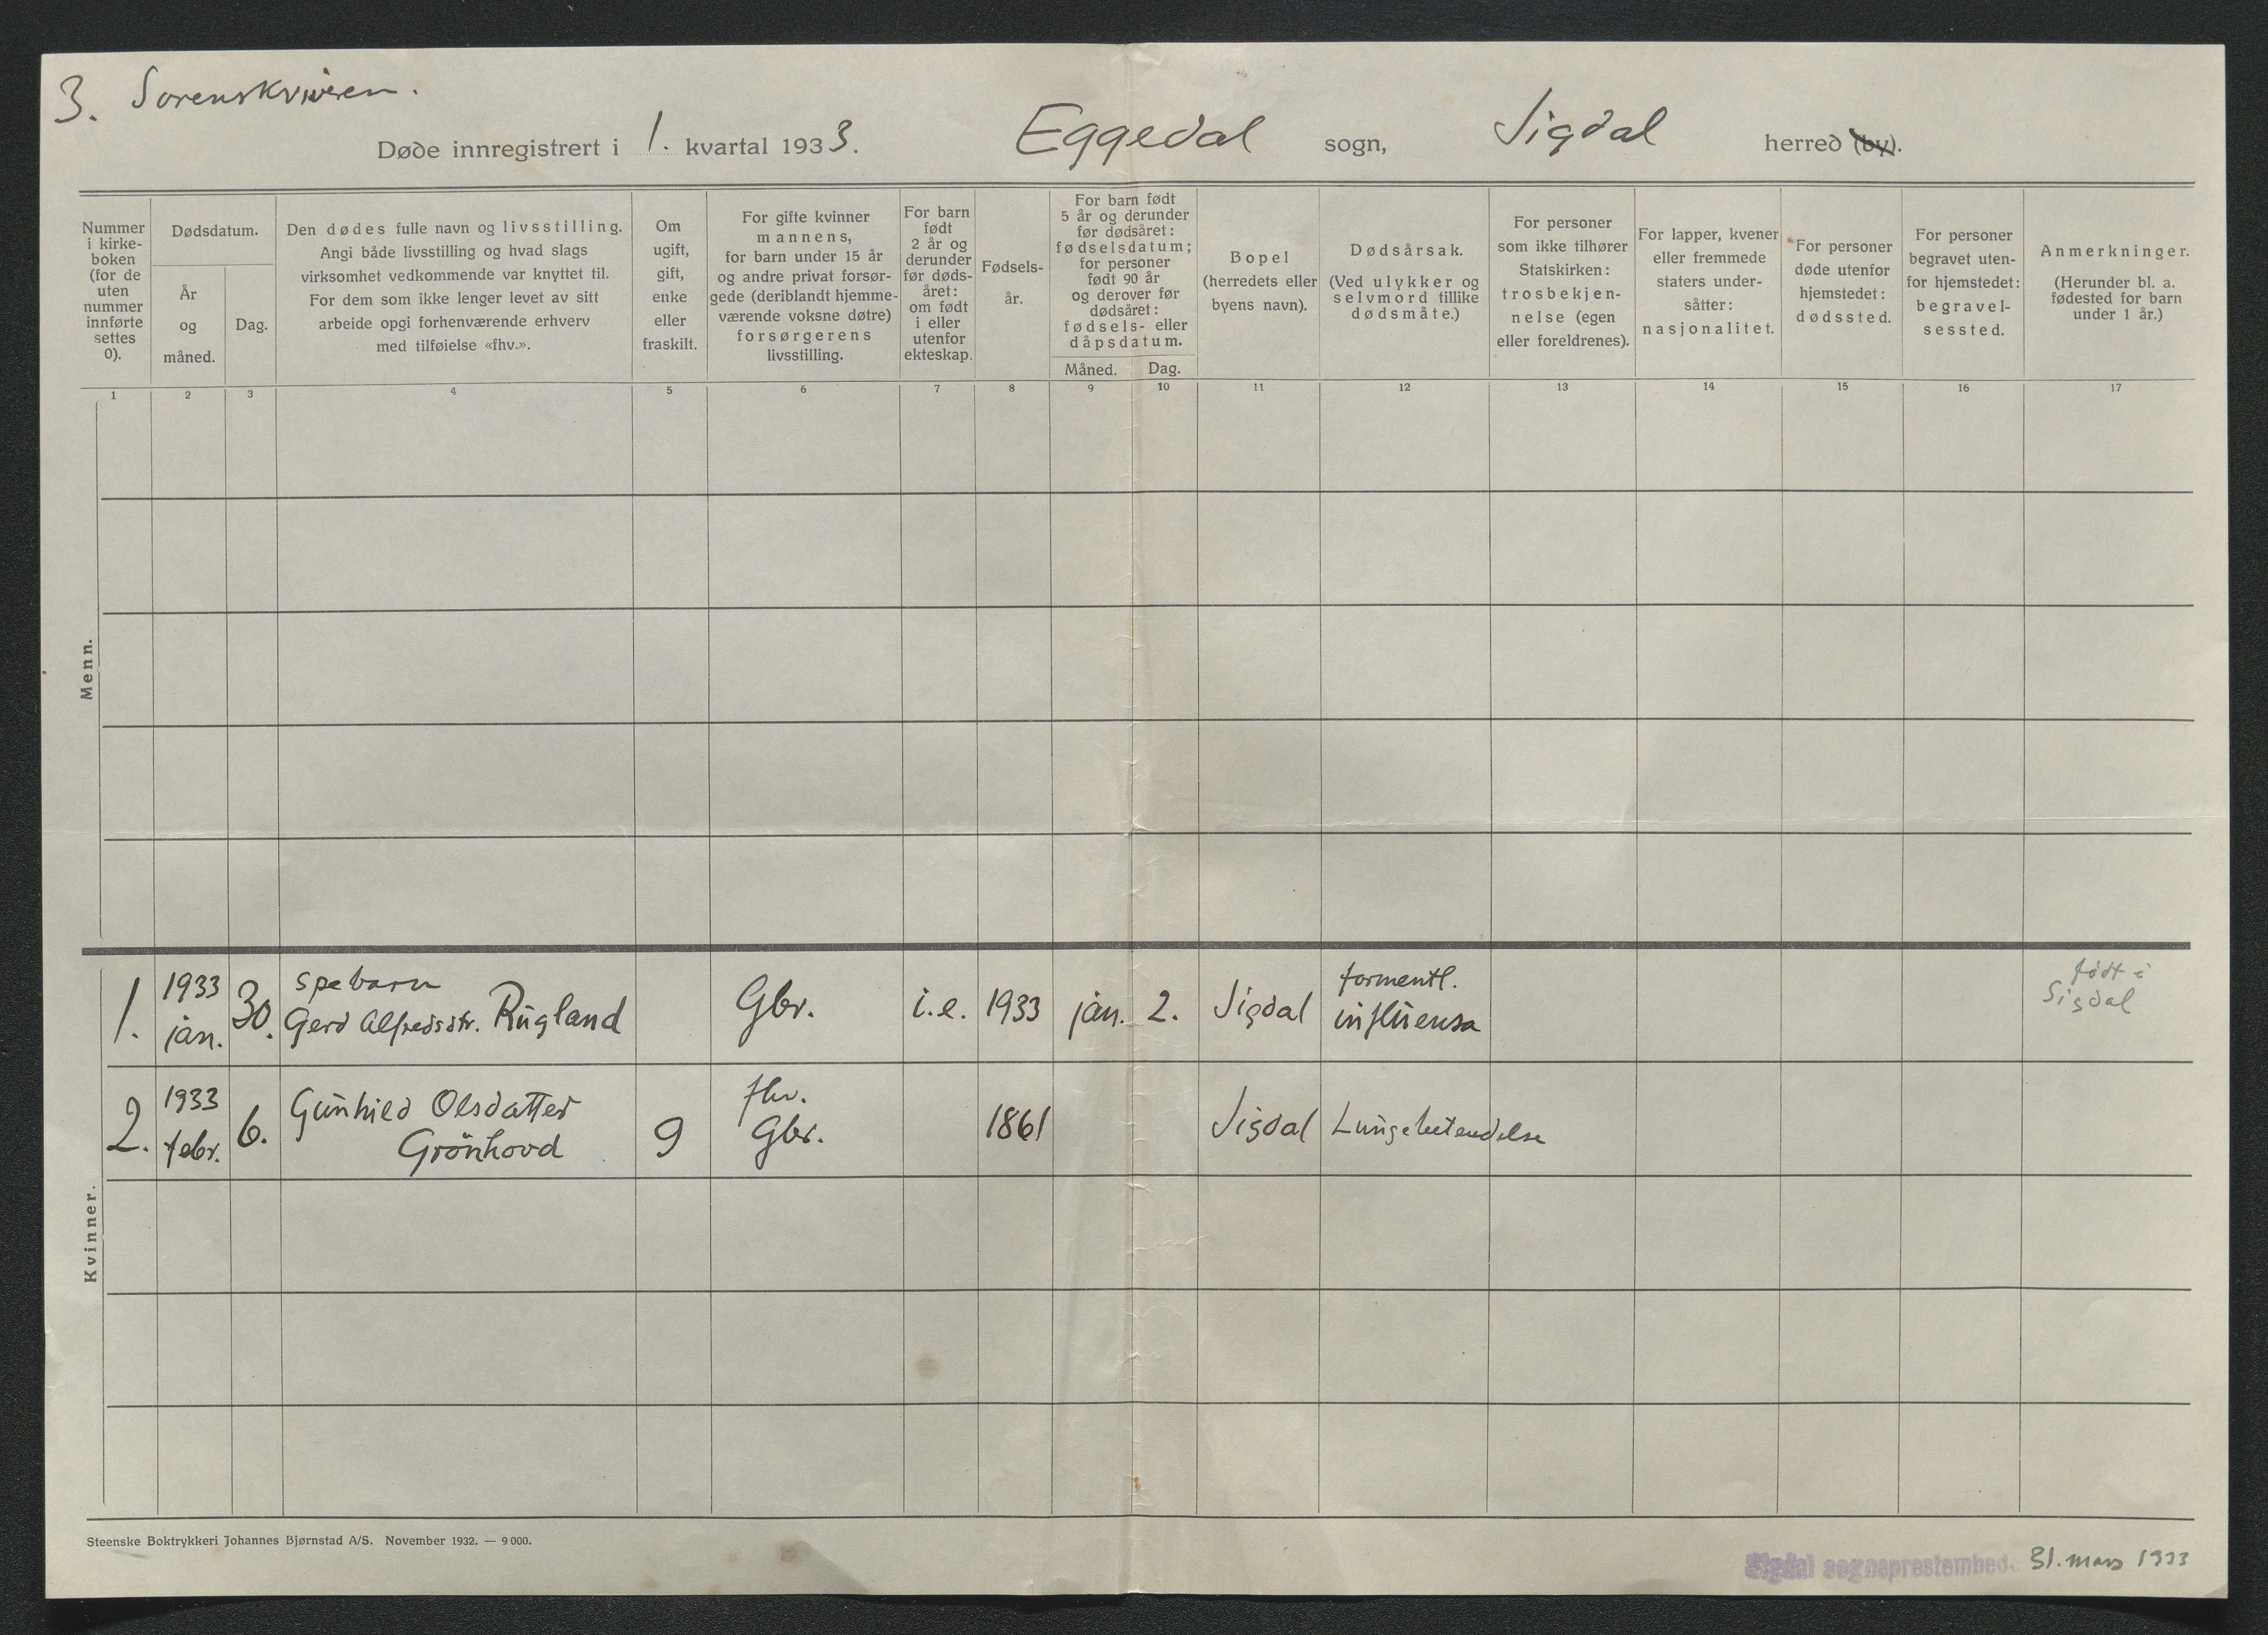 3. Sorenskriveren.
Døde innregistrert i 1. kvartal 1933. Eggedal sogn, Sigdal herred (by).
Nummer
i kirke-
boken
(for de
uten
nummer
innførte
settes
0).
Dødsdatum.
År
og
måned.
Dag.
Den dødes fulle navn og livsstilling.
Angi både livsstilling og hvad slags
virksomhet vedkommende var knyttet til.
For dem som ikke lenger levet av sitt
arbeide opgi forhenværende erhverv
med tilføielse «fhv.».
Om
ugift,
gift,
enke
eller
fraskilt.
For gifte kvinner
mannens,
for barn under 15 år
og andre privat forsør-
gede (deriblandt hjemme-
værende voksne døtre)
forsørgerens
livsstilling.
For barn
født
2 år og
derunder
før døds-
året:
om født
i eller
utenfor
ekteskap.
Fødsels-
år.
For barn født
5 år og derunder
før dødsåret:
fødselsdatum;
for personer
født 90 år
og derover før
dødsåret:
fødsels- eller
dåpsdatum.
Måned. Dag.
Bopel
(herredets eller
byens navn).
Dødsårsak.
(Ved ulykker og
selvmord tillike
dødsmåte.)
For personer
som ikke tilhører
Statskirken:
trosbekjen-
nelse (egen
eller foreldrenes).
For lapper, kvener
eller fremmede
staters under-
såtter:
nasjonalitet.
For personer
døde utenfor
hjemstedet:
dødssted.
For personer
begravet uten-
for hjemstedet:
begravel-
sessted.
Anmerkninger.
(Herunder bl. a.
fødested for barn
under 1 år.)
1 2 3 4 5 6 7 8 9 10 11 12 13 14 15 16 17
Menn.
Kvinner.
1933 spebarn formentl. født i
1. jan. 30. Gerd Alfredsdtr. Rugland Gbr. i.e. 1933 jan. 2. Sigdal influensa Sigdal
1933 Gunhild Olsdatter fhv.
2. febr. 6. Grönhovd g Gbr. 1861 Sigdal Lungebetendelse
Steenske Boktrykkeri Johannes Bjørnstad A/S. November 1932. — 9 000.
Sigdal sogneprestembed. 31. mars 1933